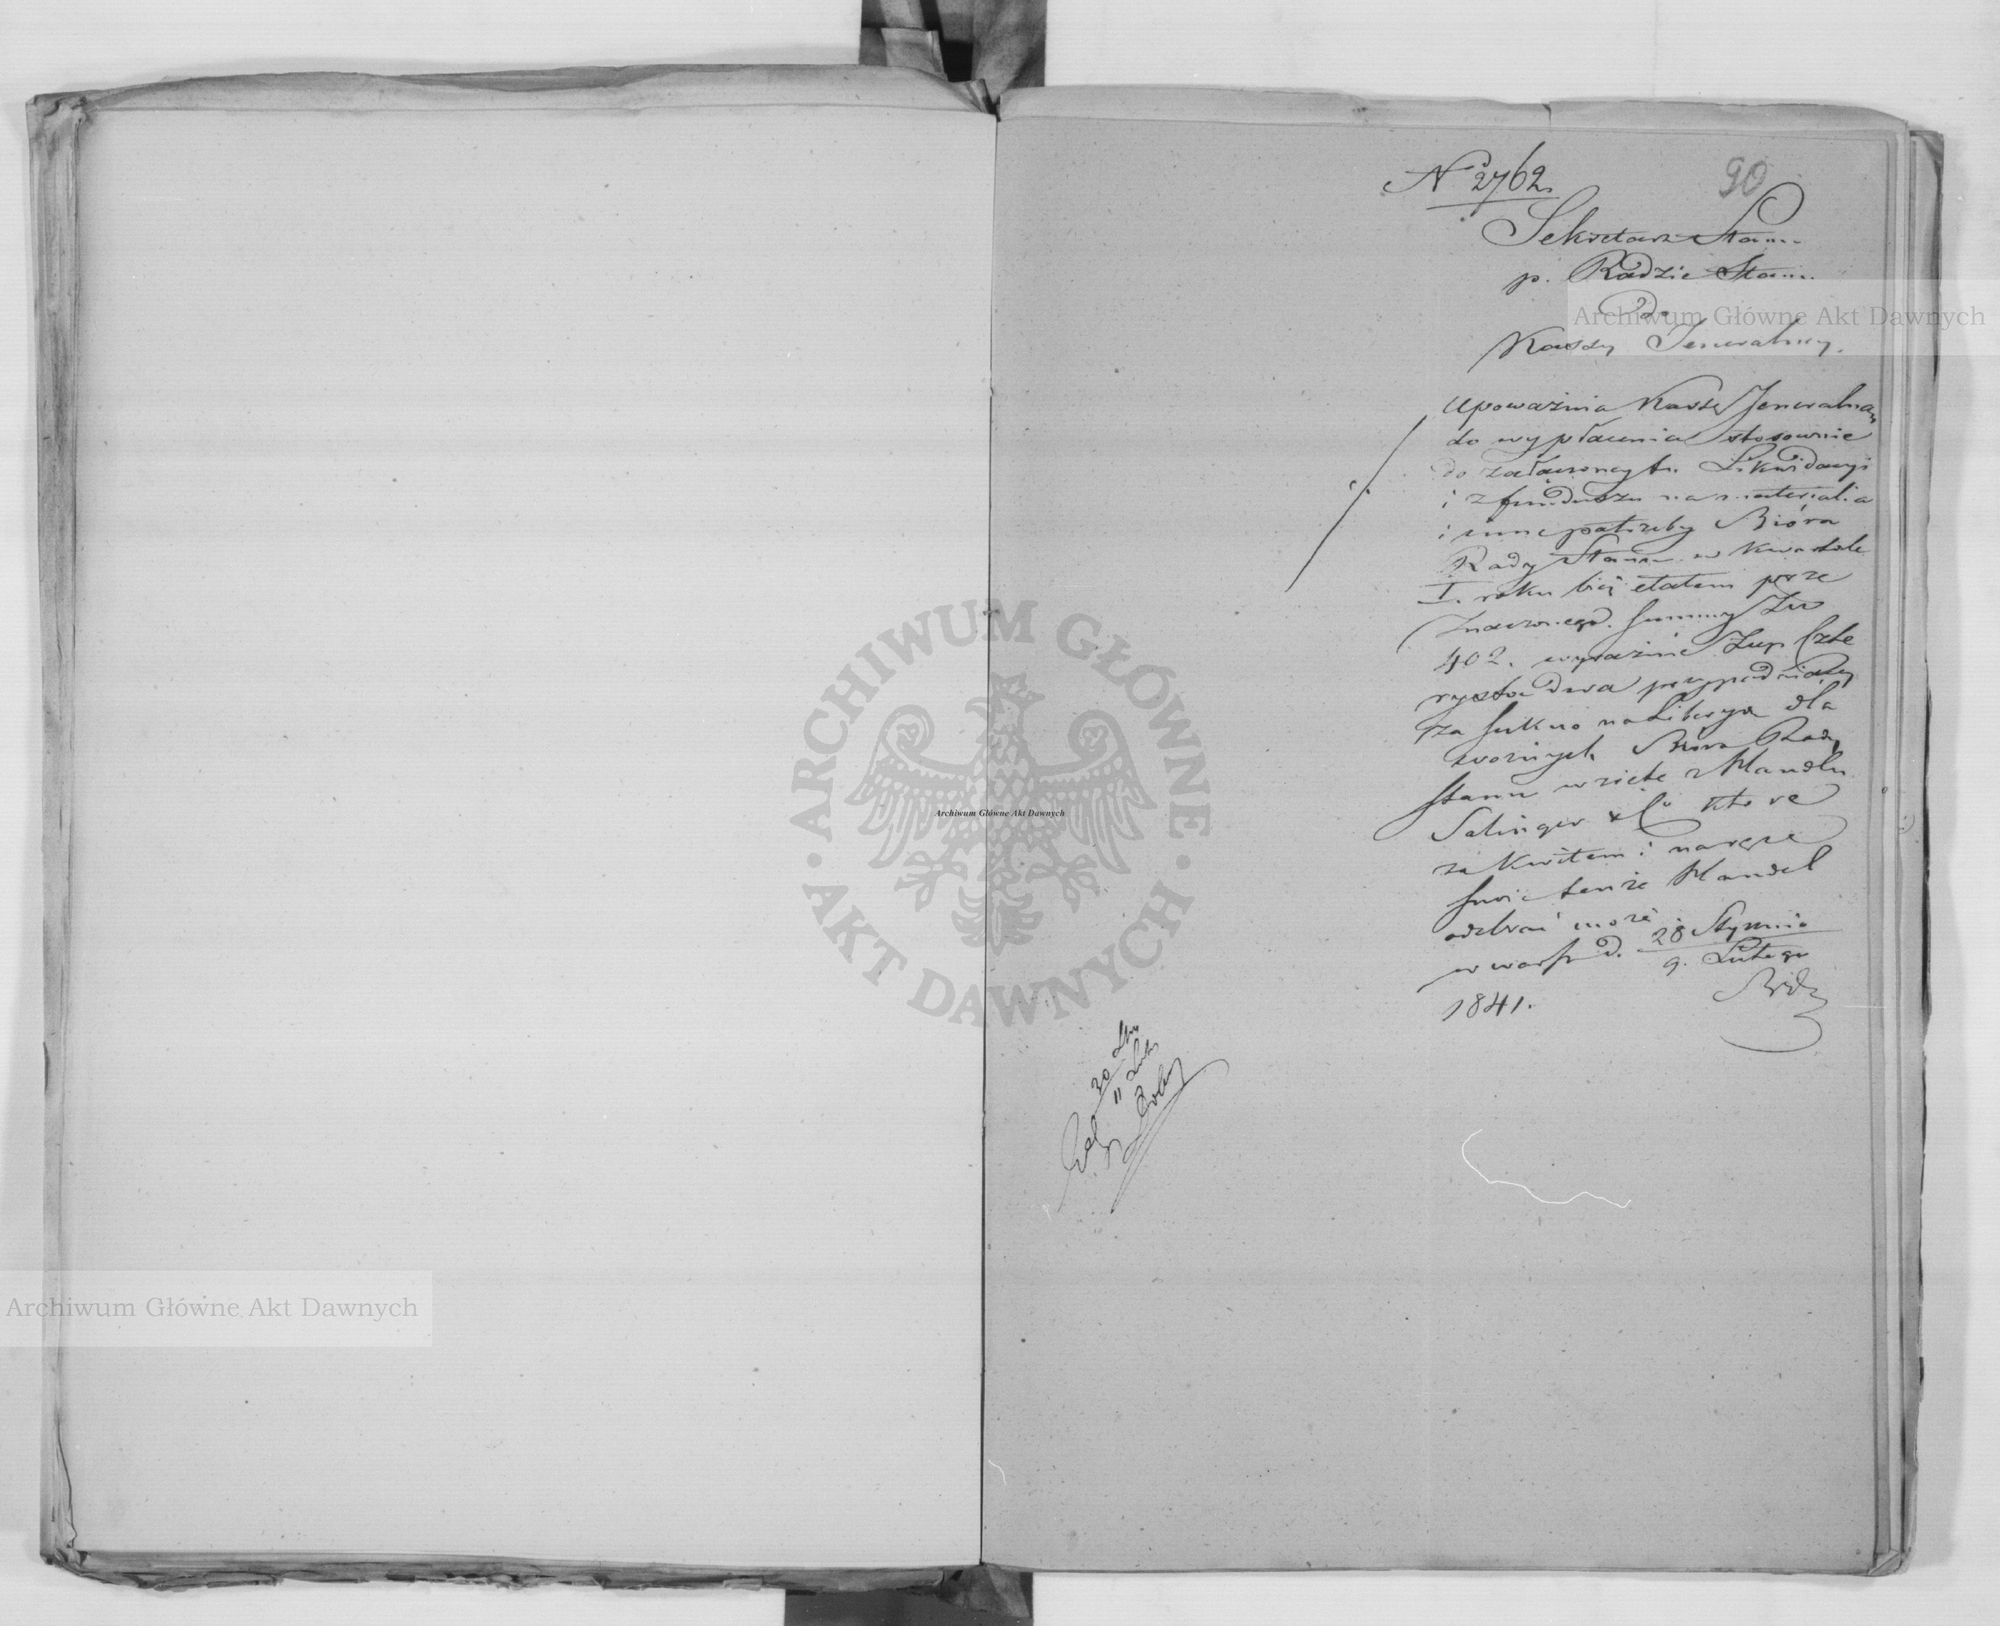 90
Nº 2762
Sekretarz Stanu
p. Radzie Stanu
Do
Kassy Jeneralney.
Upoważnia Kassę Jeneralną
do wypłacenia stosownie
do załączoney tu Likwidacyi
i z funduszu na materialia
i inne potrzeby Bióra
Rady Stanu w Kwartale
I. roku bież etatem prze
znaczonego. Summy Złr
402. wyraźnie Złp Czte
rysta dwa przypadaiącey
za sukno na Liberye dla
woźnych Bióra Rady
Stanu wzięte z Handlu
Salinger & Co które
za kwitem i na ręce
swoie tenże Handel
odebrać może
w Warsz d. 28 Stycznia
9. Lutego
1841.
30 Sty
11 Lut
Archiwum Główne Akt Dawnych
ARCHIWUM GŁÓWNE
· AKT DAWNYCH ·
Archiwum Główne Akt Dawnych
Archiwum Główne Akt Dawnych